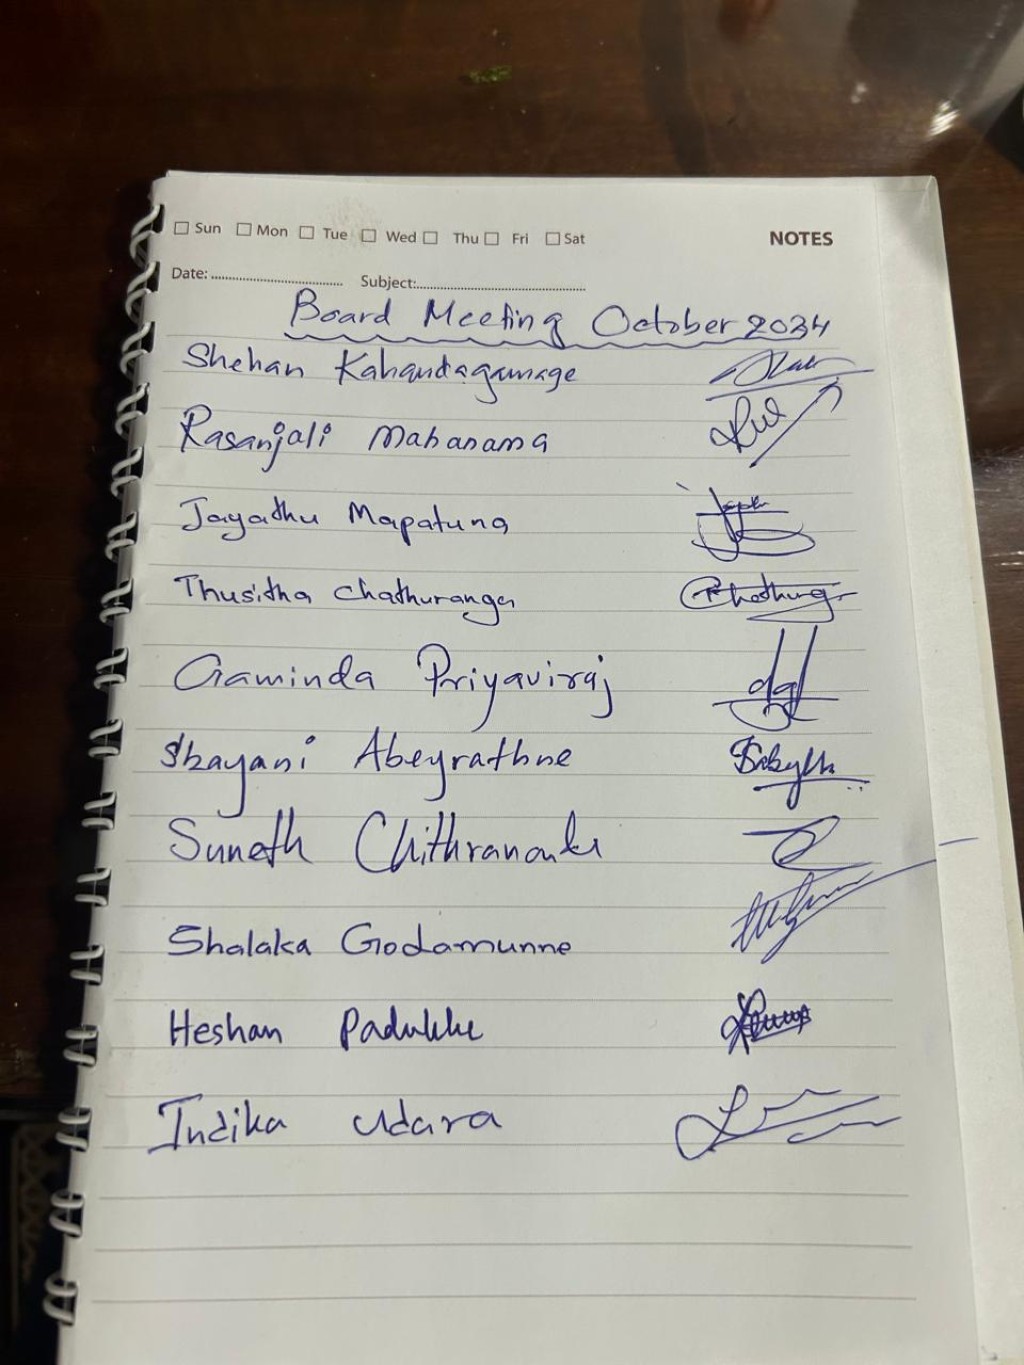 Sun Mon Tue Wed Thu Fri Sat NOTES
Date: Subject:
Board Meeting October 2034
Shehan Kahandagamage
Rasanjali Mahanama
Jayathu Mapatuna
Thusitha Chathuranga
Gaminda Priyaviraj
Shayani Abeyrathne
Suneth Chithrananda
Shalaka Godamunne
Heshan Padukke
Indika Udara